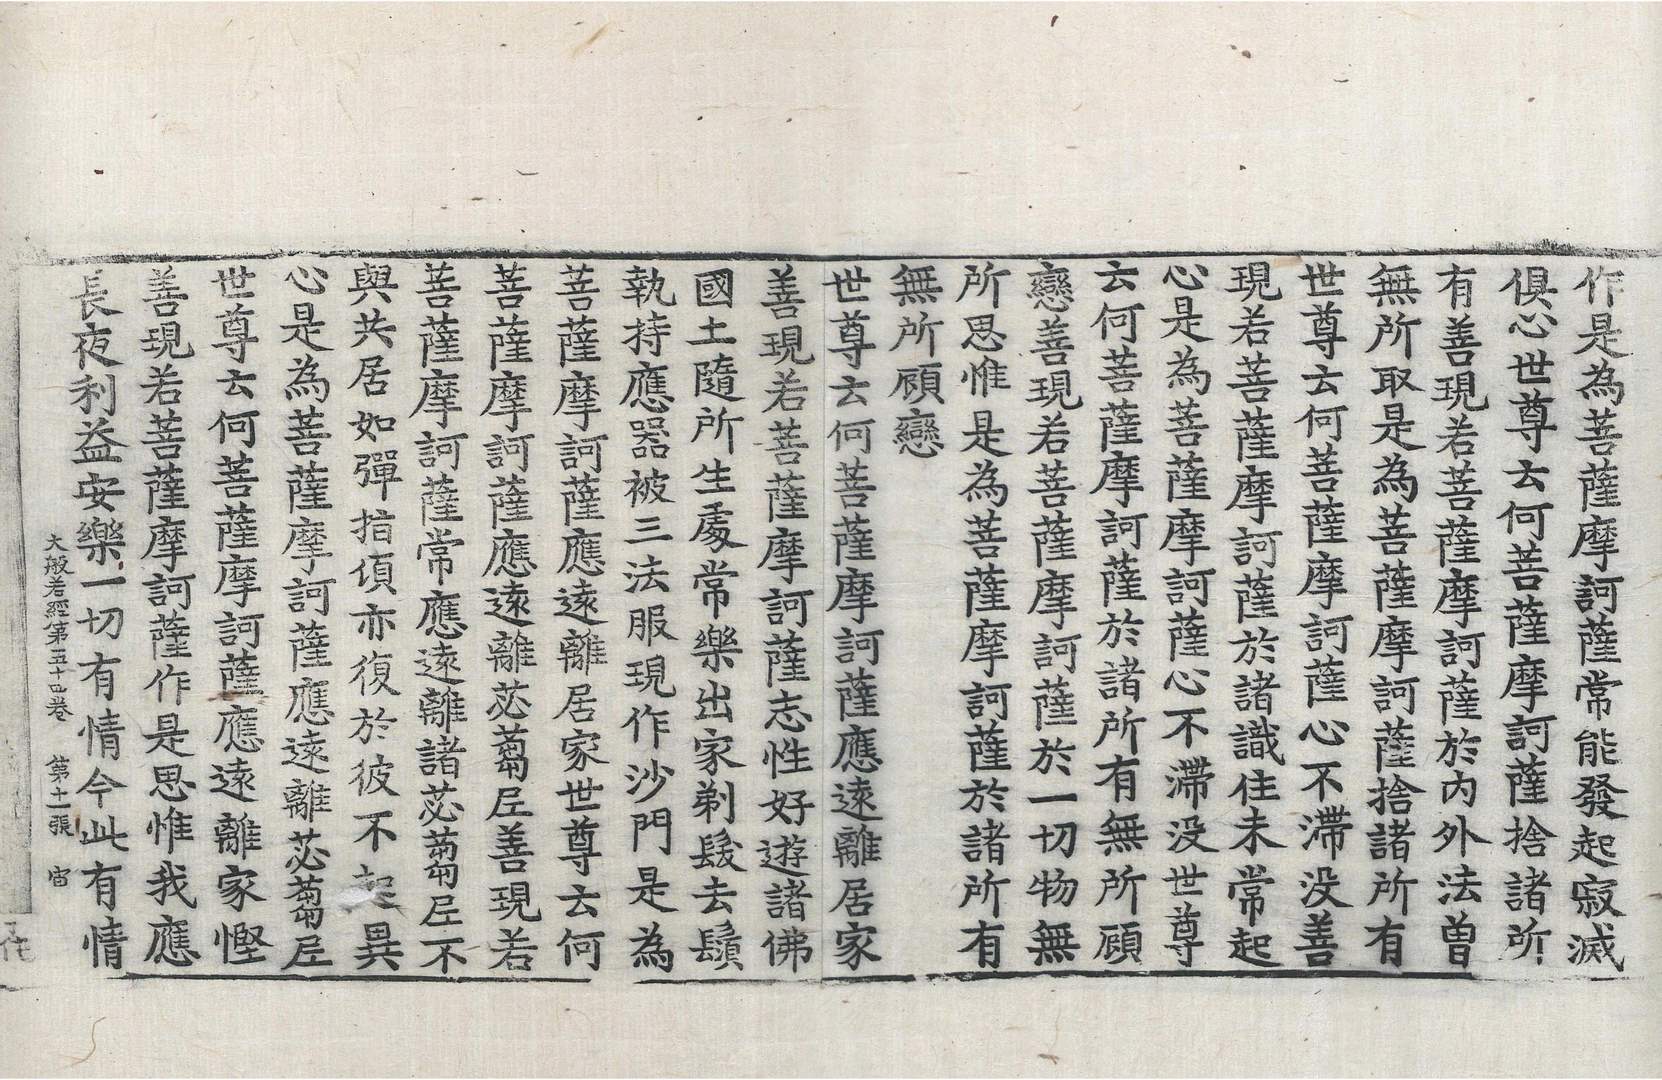 作是為菩薩摩訶薩常能發起寂滅
俱心世尊云何菩薩摩訶薩捨諸所
有善現若菩薩摩訶薩於內外法曾
無所取是為菩薩摩訶薩捨諸所有
世尊云何菩薩摩訶薩心不滯沒善
現若菩薩摩訶薩於諸識住未常起
心是為菩薩摩訶薩心不滯沒世尊
云何菩薩摩訶薩於諸所有無所顧
戀善現若菩薩摩訶薩於一切物無
所思惟是為菩薩摩訶薩於諸所有
無所顧戀
世尊云何菩薩摩訶薩應遠離居家
善現若菩薩摩訶薩志性好遊諸佛
國土隨所生處常樂出家剃髮去鬚
執持應器被三法服現作沙門是為
菩薩摩訶薩應遠離居家世尊云何
菩薩摩訶薩應遠離苾蒭尼善現若
菩薩摩訶薩常應遠離諸苾蒭尼不
與共居如彈指頃亦復於彼不起異
心是為菩薩摩訶薩應遠離苾蒭尼
世尊云何菩薩摩訶薩應遠離家慳
善現若菩薩摩訶薩作是思惟我應
長夜利益安樂一切有情今此有情
大般若經第五十四卷 第十一張 宙